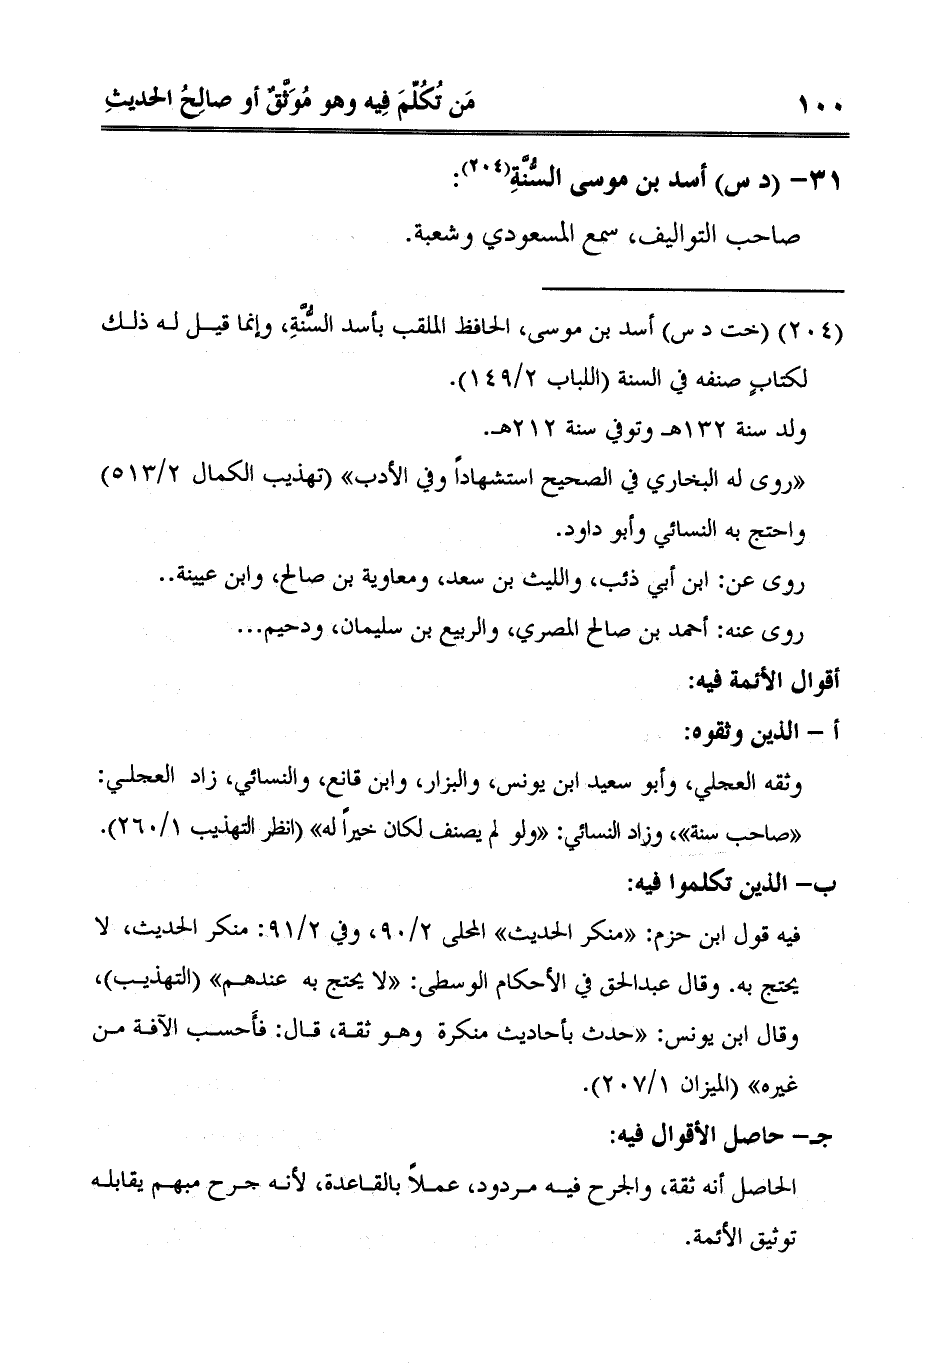 ١٠٠ مَن تُكُلِّمَ فِيه وهو مُوَثَّقٌ أو صالِحُ الحديثِ
٣١- (د س) أسد بن موسى السُّنَّةِ(٢٠٤):
صاحب التواليف، سمع المسعودي وشعبة.
(٢٠٤) (خت د س) أسد بن موسى، الحافظ الملقب بأسد السُّنَّةِ، وإنما قيل له ذلك
لكتابٍ صنفه في السنة (اللباب ١٤٩/٢).
ولد سنة ١٣٢هـ وتوفي سنة ٢١٢هـ.
«روى له البخاري في الصحيح استشهاداً وفي الأدب» (تهذيب الكمال ٥١٣/٢)
واحتج به النسائي وأبو داود.
روى عن: ابن أبي ذئب، والليث بن سعد، ومعاوية بن صالح، وابن عيينة..
روى عنه: أحمد بن صالح المصري، والربيع بن سليمان، ودحيم...
أقوال الأئمة فيه:
أ - الذين وثقوه:
وثقه العجلي، وأبو سعيد ابن يونس، والبزار، وابن قانع، والنسائي، زاد العجلي:
«صاحب سنة»، وزاد النسائي: «ولو لم يصنف لكان خيراً له» (انظر التهذيب ٢٦٠/١).
ب- الذين تكلموا فيه:
فيه قول ابن حزم: «منكر الحديث» المحلى ٩٠/٢، وفي ٩١/٢: منكر الحديث، لا
يحتج به. وقال عبدالحق في الأحكام الوسطى: «لا يحتج به عندهم» (التهذيب)،
وقال ابن يونس: «حدث بأحاديث منكرة وهو ثقة، قال: فأَحسب الآفة من
غيره» (الميزان ٢٠٧/١).
جـ- حاصل الأقوال فيه:
الحاصل أنه ثقة، والجرح فيه مردود، عملاً بالقاعدة، لأنه جرح مبهم يقابله
توثيق الأئمة.